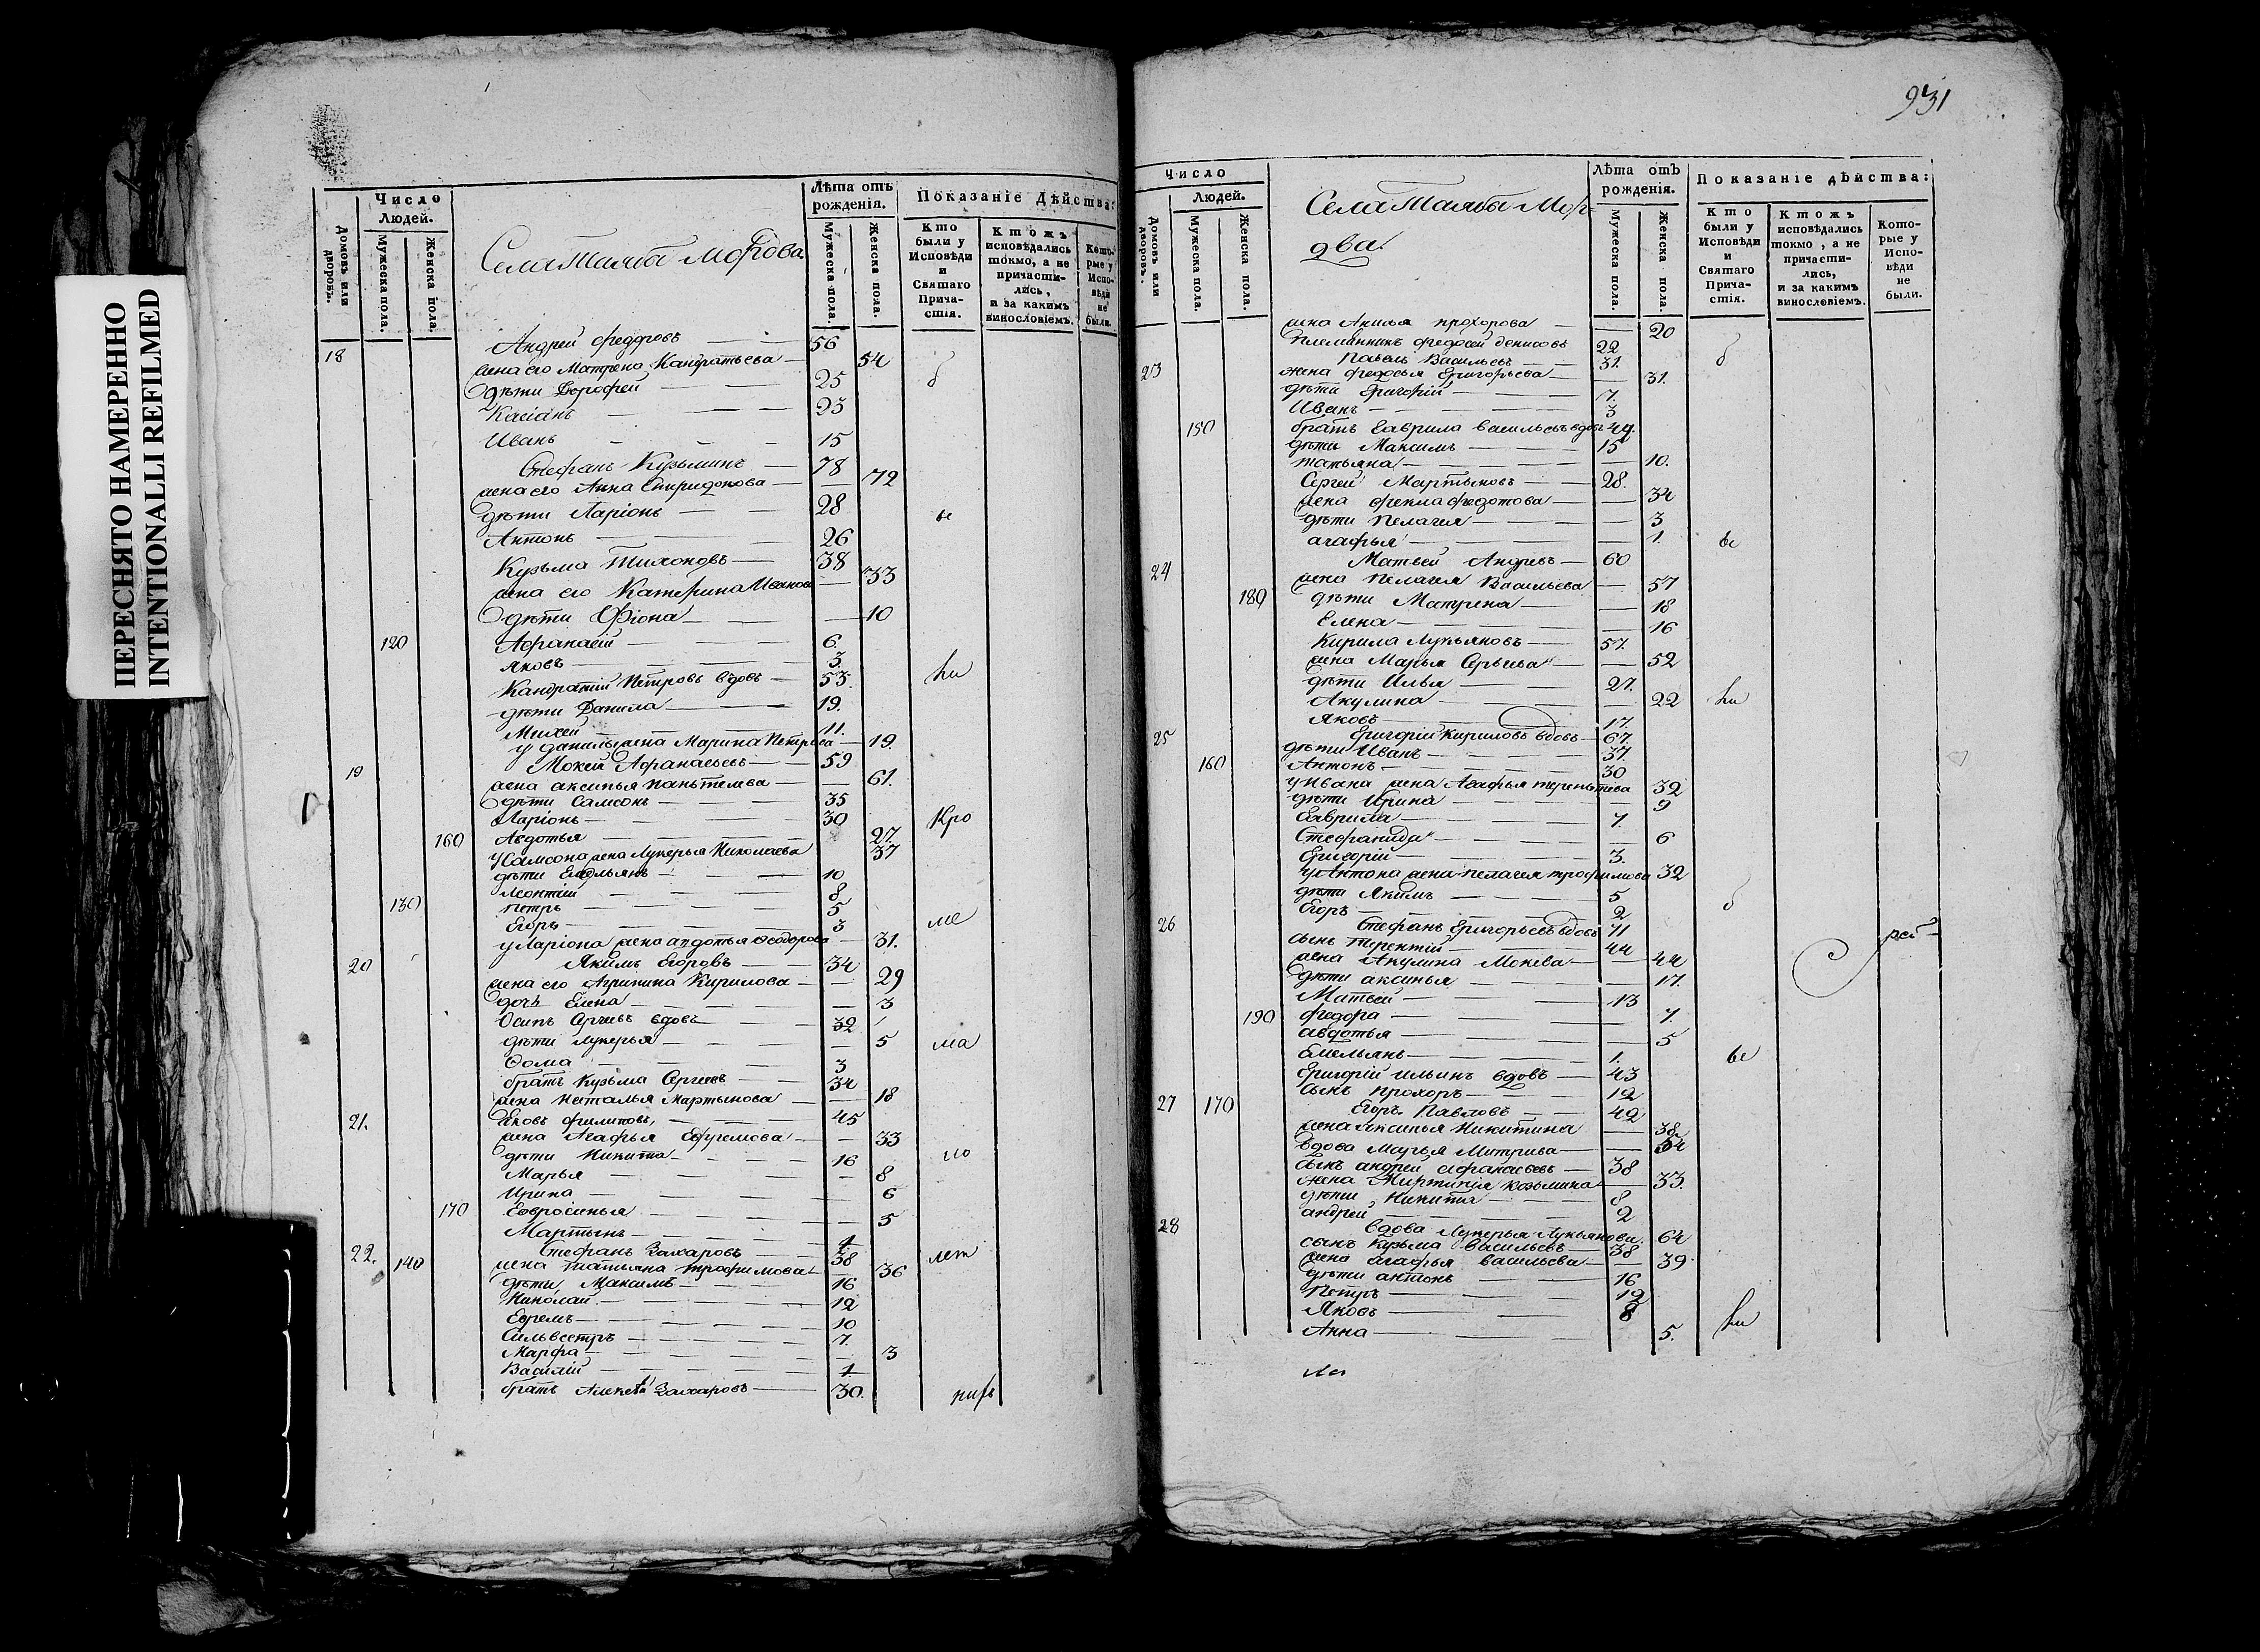 ПЕРЕСНЯТО НАМЕРЕННО
INTENTIONALLI REFILMED
Число
Людей.
Домовъ или дворовъ.
Мужеска пола.
Женска пола.
Села
Лѣта отъ рожденія.
Мужеска пола.
Женска пола.
Показаніе Дѣйства:
Кто были у Исповѣди и Святаго Прича-стія.
Ктожъ исповѣдались токмо, а не причасти-лись, и за какимъ винословіемъ.
Кото-рые у Испо-вѣди не были.
Андрей Федоровъ 56
18 жена его Матрена Кандратьева 54
дѣти Дорофей 25 б
Касіанъ 23
Иванъ 15
Стефанъ Кузьминъ 78
жена его Анна Спиридонова 72
дѣти Ларіонъ 28 ы
Антонъ 26
Кузьма Тихоновъ 38
жена его Катерина Иванова 33
дѣти Фіона 10
120 Афанасій 6.
Яковъ 3
Кандратій Петровъ вдовъ 53 ли
дѣти Данила 19.
Михей 11.
у Данилы жена Марина Петрова 19.
19 Мокей Афанасьевъ 59
жена аксинья 61.
дѣти Самсонъ 35
Ларіонъ 30 Кро
160 Авдотья 27.
у Самсона жена Лукерья Николаева 37
дѣти Емельянъ 10
Леонтій 8
130 Петръ 5
Егоръ 3 ме
у Ларіона жена авдотья Феодорова 31.
20 Якимъ Егоровъ 34
жена его Агрипина Кирилова 29
дочь Елена 3
Осипъ Сергѣевъ вдовъ 32
дѣти Лукерья 5 ма
Фома 3
братъ Кузьма Сергеевъ 34
жена Наталья Мартынова 18
21. Яковъ Филиповъ 45
жена Агафья Ефремова 33
дѣти Никита 16 ло
Марья 8
Ирина 6
170 Евросинья 5
Мартынъ 1
22. Стефанъ Захаровъ 38
140 жена Татьяна Трофимова 36 лет
дѣти Максимъ 16
Николай 12
Ефремъ 10
Сильвестръ 7.
Марфа 3
Василій 1
братъ Алексѣй Захаровъ 30.
931
Число
Людей.
Домовъ или дворовъ.
Мужеска пола.
Женска пола.
Села
Лѣта отъ рожденія.
Мужеска пола.
Женска пола.
Показаніе дѣйства:
Кто были у Исповѣди и Святаго Прича-стія.
Ктожъ исповѣдались токмо, а не причасти-лись, и за какимъ винословіемъ.
Кото-рые у Испо-вѣди не были.
жена Анисья прохорова 20
племянникъ Федосей денисовъ 22 б
23 Павелъ Васильевъ 31.
жена Федосья Григорьева 31.
дѣти Григорій 7.
Иванъ 3
150 братъ Гаврила васильевъ вдовъ 49.
дѣти Максимъ 15
татьяна 10.
Сергей Мартыновъ 28.
жена Фекла Федотова 34
дѣти Пелагея 3
агафья 1. ы
24 Матвей Андреевъ 60
жена Пелагея Васильева 57
180 дѣти Матрена 18
Елена 16
Кирила Лукьяновъ 57.
жена Марья Сергѣева 52
дѣти Илья 27.
Акулина 22 ли
Яковъ 17.
25 Григорій Кириловъ вдовъ 67.
дѣти Иванъ 37.
160 Антонъ 30
у Ивана жена Агафья терентьева 32
дѣти Ирина 9
Гаврила 7.
Стефанида 6
Григорій 3.
у Антона жена пелагея трофимова 32
дѣти Якимъ 5 б
Егоръ 2
26 Стефанъ Григорьевъ вдовъ 71
сынъ Терентій 44
жена Акулина Мокеева 44
дѣти аксинья 17.
Матвей 13
190 Федора 7
авдотья 5
Емельянъ 1. ы
Григорій ильинъ вдовъ 43
сынъ Прохоръ 12
27 170 Егоръ Павловъ 42
жена аксинья Никитина 38
вдова Марья Митрева 54
сынъ андрей афанасьевъ 38
жена козьмина 33.
дѣти Никита 8
андрей 2
28 вдова Лукерья Лукьянова 64
сынъ Кузьма Васильевъ 38
жена агафья васильева 39
дѣти антонъ 16
Петръ 12
Яковъ 8 ли
Анна 5.